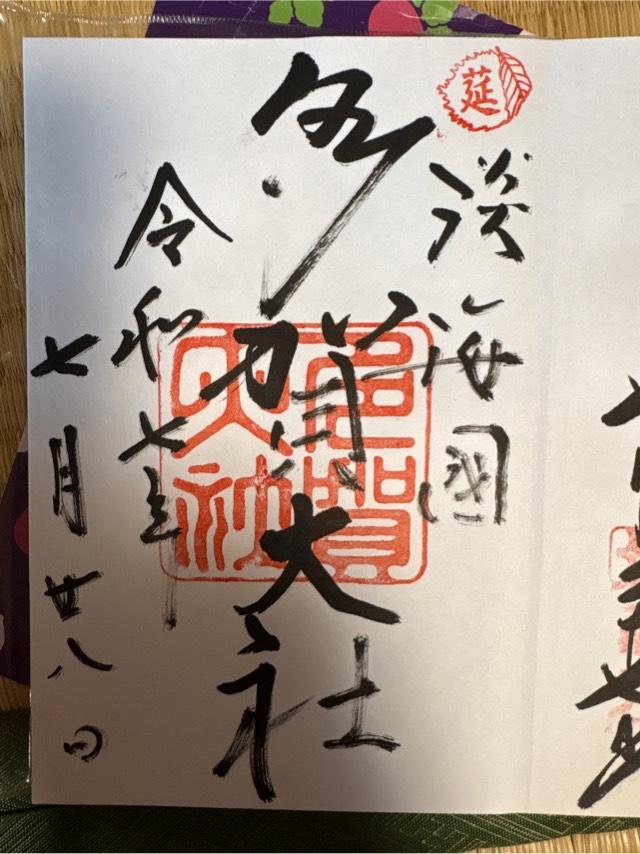 莚
淡海國
多賀大社
多賀大社
令和七年
七月廿八日